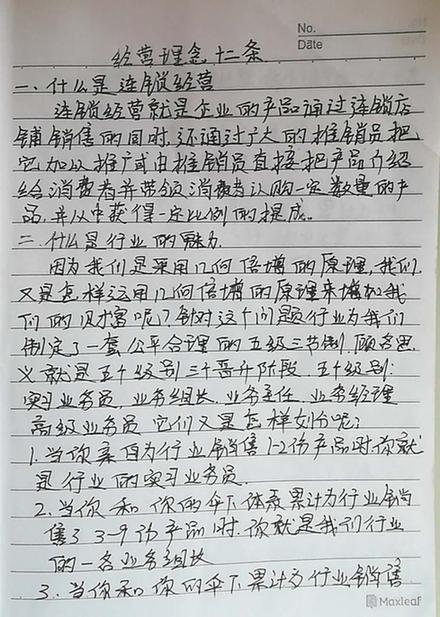 No.
Date
经营理念十二条
一、什么是连锁经营
连锁经营就是企业的产品通过连锁店
铺销售的同时,还通过广大的推销员把
它加以推广或由推销员直接把产品介绍
给消费者并带领消费者认购一定数量的产
品,并从中获得一定比例的提成。
二、什么是行业的魅力
因为我们是采用几何倍增的原理,我们
又是怎样运用几何倍增的原理来增加我
们的财富呢?针对这个问题行业为我们
制定了一套公平合理的五级三节制,顾名思
义就是五个级别三个晋升阶段,五个级别:
实习业务员,业务组长,业务主任,业务经理
高级业务员,它们又是怎样划分呢?
1.当你亲自为行业销售1-2份产品时,你就
是行业的实习业务员.
2.当你和你的伞下体系累计为行业销
售了3-9份产品时,你就是我们行业
的一名业务组长
3.当你和你的伞下累计为行业销售
Maxleaf